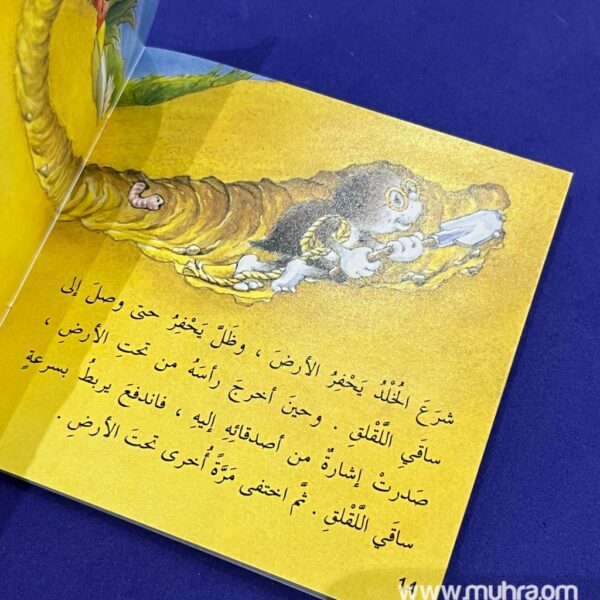 شرَعَ الخُلْدُ يَحْفِرُ الأرضَ ، وظَلَّ يَحْفِرُ حتى وصلَ إلى
ساقَيِ اللَّقْلقِ . وحينَ أخرجَ رأسَهُ من تحتِ الأرضِ ،
صَدرتْ إشارةٌ من أصدقائِهِ إليهِ ، فاندفعَ يربطُ بسرعةٍ
ساقَيِ اللَّقْلقِ . ثمَّ اختفى مَرَّةً أُخرى تحتَ الأرضِ .
www.muhra.om